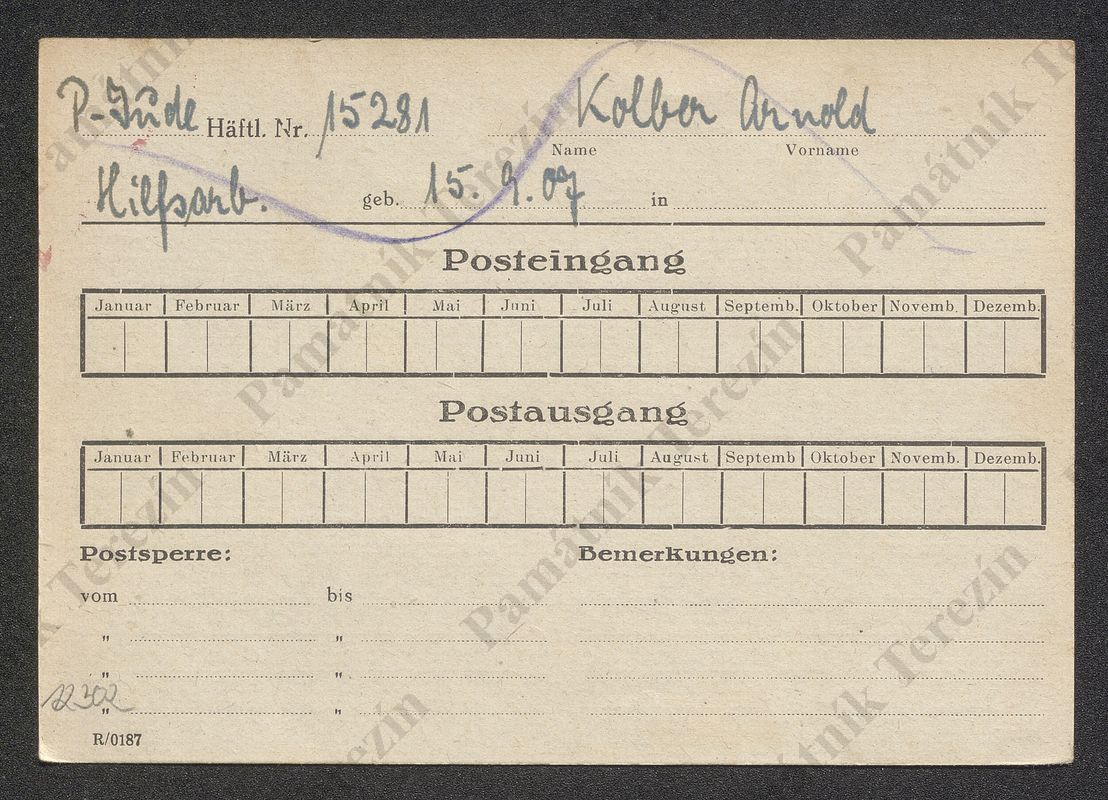 P-Jude Häftl. Nr. 15281 Kolber Arnold
Name Vorname
Hilfsarb. geb. 15. 9. 07 in
Posteingang
Januar Februar März April Mai Juni Juli August Septemb. Oktober Novemb. Dezemb.
Postausgang
Januar Februar März April Mai Juni Juli August Septemb Oktober Novemb. Dezemb.
Postsperre: Bemerkungen:
vom bis
" "
" "
" "
12302
R/0187
Památník Terezín